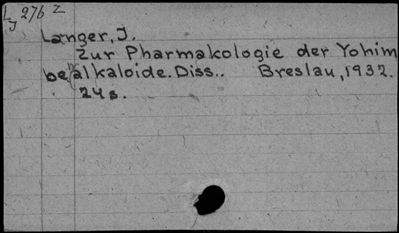 L, 276 z
J
Langer, J.
Zur Pharmakologie der Yohim
bealkaloide. Diss.. Breslau, 1932.
24 s.